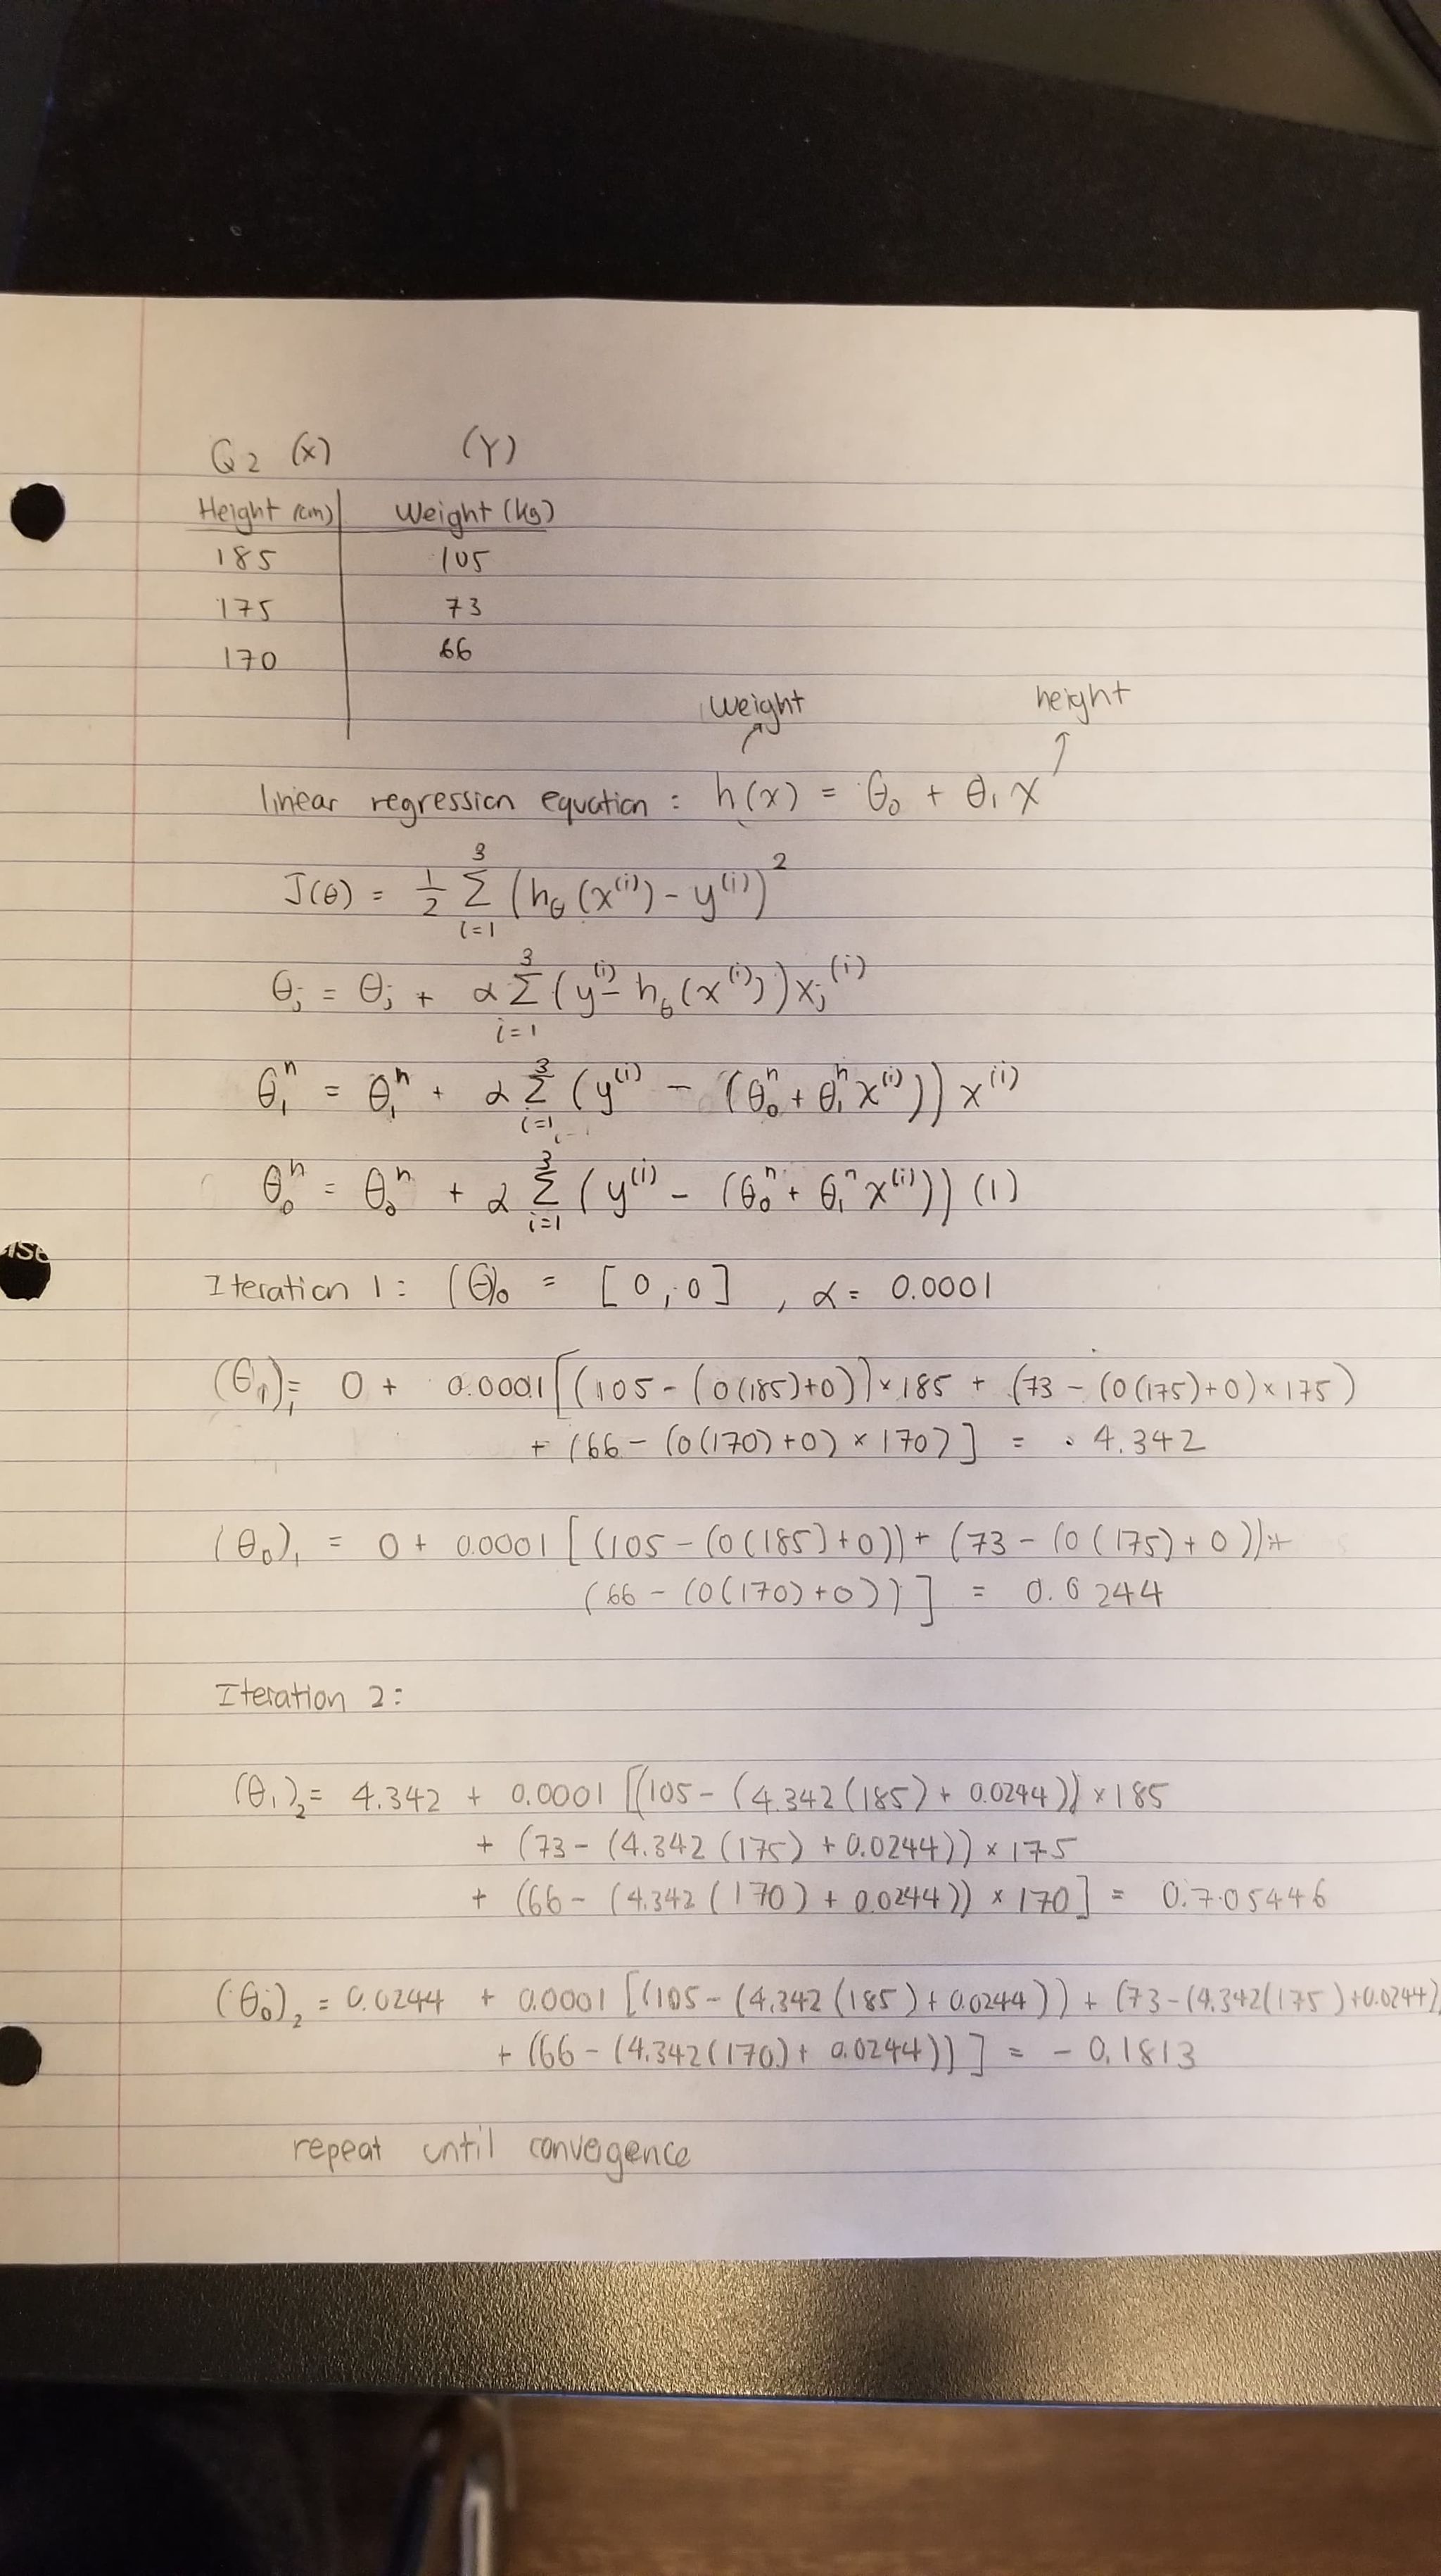 Q2 (X) (Y)
Height (cm) Weight (kg)
185 105
175 73
170 66
weight height
linear regression equation : h(x) = θ₀ + θ₁ x
J(θ) = 1/2 Σ_{i=1}^{3} (h_θ (x^(i)) - y^(i))²
θ_j = θ_j + α Σ_{i=1}^{3} (y^(i) - h_θ (x^(i))) x_j^(i)
θ₁ⁿ = θ₁ⁿ + α Σ_{i=1}^{3} (y^(i) - (θ₀ⁿ + θ₁ⁿ x^(i))) x^(i)
θ₀ⁿ = θ₀ⁿ + α Σ_{i=1}^{3} (y^(i) - (θ₀ⁿ + θ₁ⁿ x^(i))) (1)
Iteration 1 : (θ)₀ = [0, 0] , α = 0.0001
(θ₁)₁ = 0 + 0.0001 [(105 - (0(185)+0)) × 185 + (73 - (0(175)+0) × 175)
+ (66 - (0(170)+0) × 170)] = 4.342
(θ₀)₁ = 0 + 0.0001 [(105 - (0(185)+0)) + (73 - (0(175)+0)) +
(66 - (0(170)+0))] = 0.0244
Iteration 2 :
(θ₁)₂ = 4.342 + 0.0001 [(105 - (4.342(185) + 0.0244)) × 185
+ (73 - (4.342(175) + 0.0244)) × 175
+ (66 - (4.342(170) + 0.0244)) × 170] = 0.705446
(θ₀)₂ = 0.0244 + 0.0001 [(105 - (4.342(185) + 0.0244)) + (73 - (4.342(175) + 0.0244)
+ (66 - (4.342(170) + 0.0244))] = - 0.1813
repeat until convergence